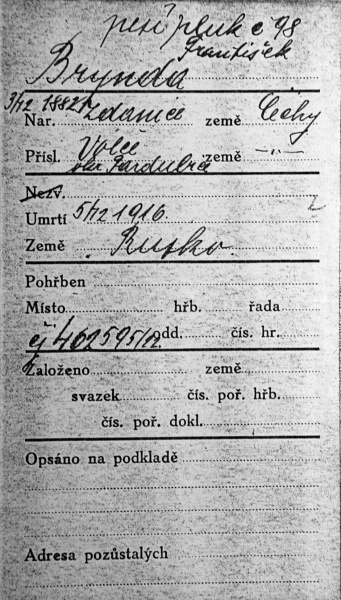 pěší pluk č 98
František
Brynda
3/12 1882 Nar. Zdanice země Čechy
Přísl. Volče země -"-
okr. Pardubice
Nezv.
Umrtí 5/12 1916
Země Rusko
Pohřben
Místo hřb. řada
čj 462595/12. odd. čís. hr.
Založeno země
svazek čís. poř. hřb.
čís. poř. dokl.
Opsáno na podkladě
Adresa pozůstalých